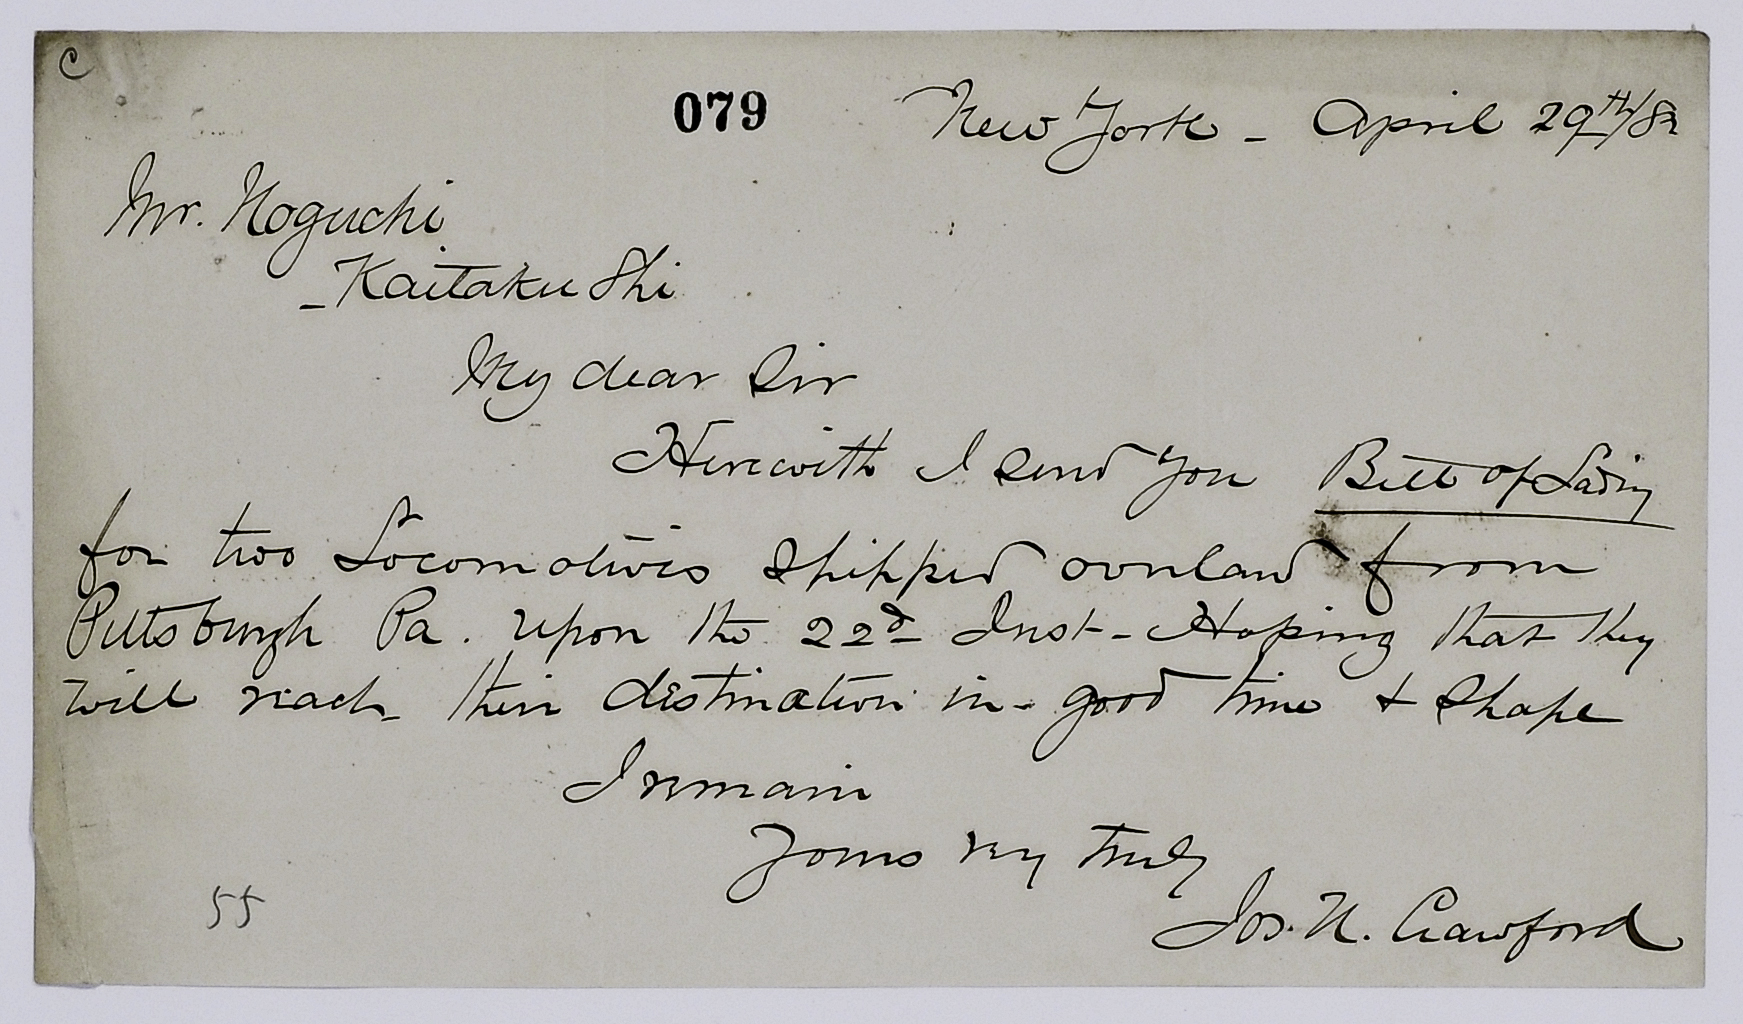 C
079
New York - April 29th/82
Mr. Noguchi
- Kaitaku Shi
My dear Sir
Herewith I send you Bill of Lading
for two Locomotives shipped overland from
Pittsburgh Pa. upon the 22d Inst - Hoping that they
will reach their destination in good time & shape
I remain
Yours very truly
Jos. U. Crawford
55